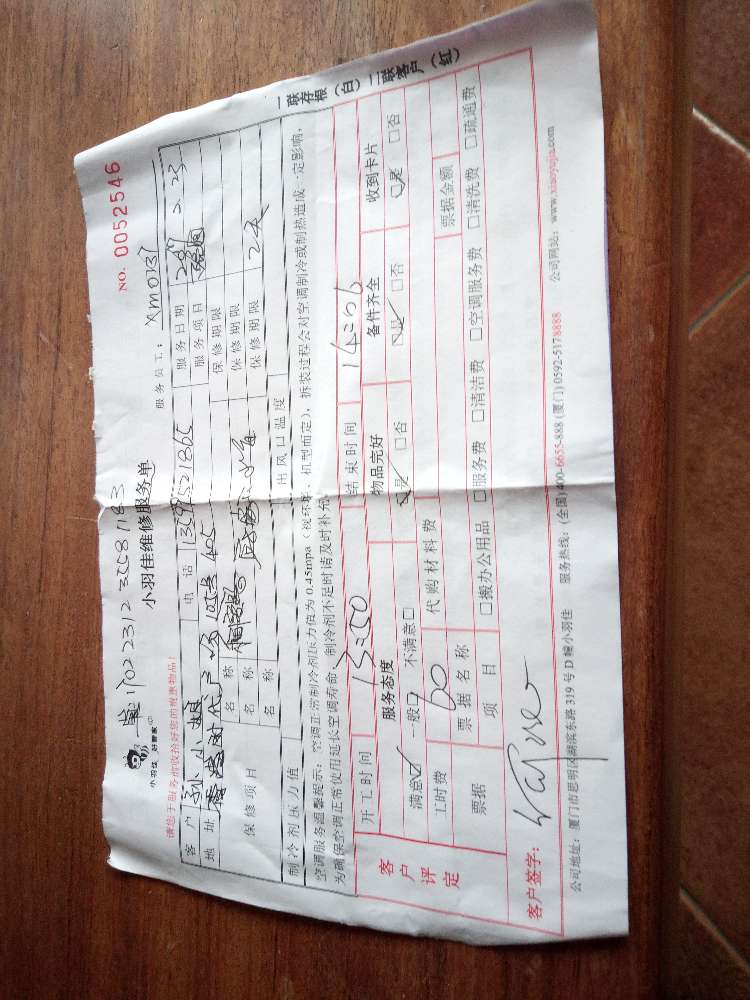 NO. 0052546
1702312355 8183
小羽佳 好管家
小羽佳维修服务单
服务员工: XM0137
请您于服务前收拾好您的贵重物品!
客户 孙小姐 电话 13599521865 服务日期 2.23
地址 时代广场 405 服务项目
保修项目 名称 保修期限
名称 保修期限
名称 保修期限 2天
制冷剂压力值 出风口温度
空调服务温馨提示: 空调正常制冷剂压力值为0.45mpa(视环境、机型而定), 拆装过程会对空调制冷或制热造成一定影响,
为确保空调正常使用延长空调寿命, 制冷剂不足时请及时补充
一联存根(白) 二联客户(红)
客户评定
开工时间 13:50 结束时间 14:06
服务态度 物品完好 备件齐全 收到卡片
满意☑ 一般□ 不满意□ ☑是 □否 ☑是 □否 ☑是 □否
工时费 60 代购材料费
票据 票据名称 票据金额
项目 □搬办公用品 □服务费 □清洁费 □空调服务费 □清洗费 □疏通费
客户签字:
公司地址: 厦门市思明区湖滨东路319号D幢小羽佳 服务热线: (全国)400-6655-888 (厦门)0592-5178888 公司网站: www.xiaoyujia.com